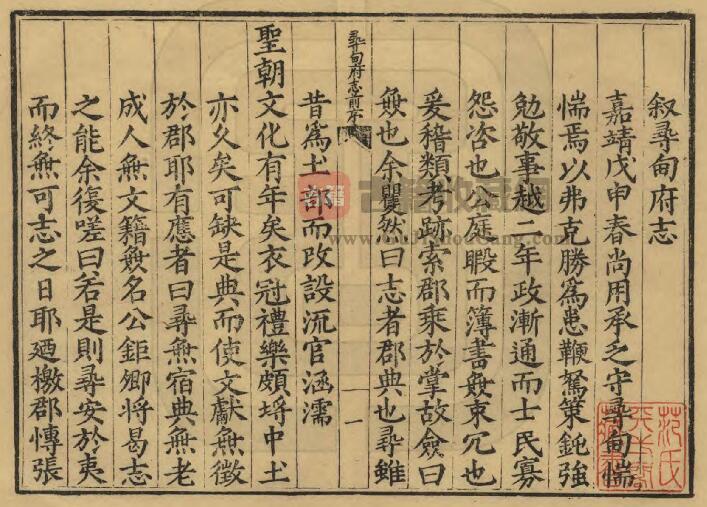 叙尋甸府志
嘉靖戊申春尚用承乏守尋甸惴
惴焉以弗克勝爲患鞭駑策鈍強
勉敬事越二年政漸通而士民寡
怨咨也公庭暇而簿書無束冗也
爰稽類考跡索郡乘於掌故僉曰
無也余瞿然曰志者郡典也尋雖
尋甸府志前序
一
昔爲土部而改設流官涵濡
聖朝文化有年矣衣冠禮樂頗埒中土
亦久矣可缺是典而使文獻無徵
於郡耶有應者曰尋無宿典無老
成人無文籍無名公鉅卿將曷志
之能余復嗟曰若是則尋安於夷
而終無可志之日耶廼檄郡愽張